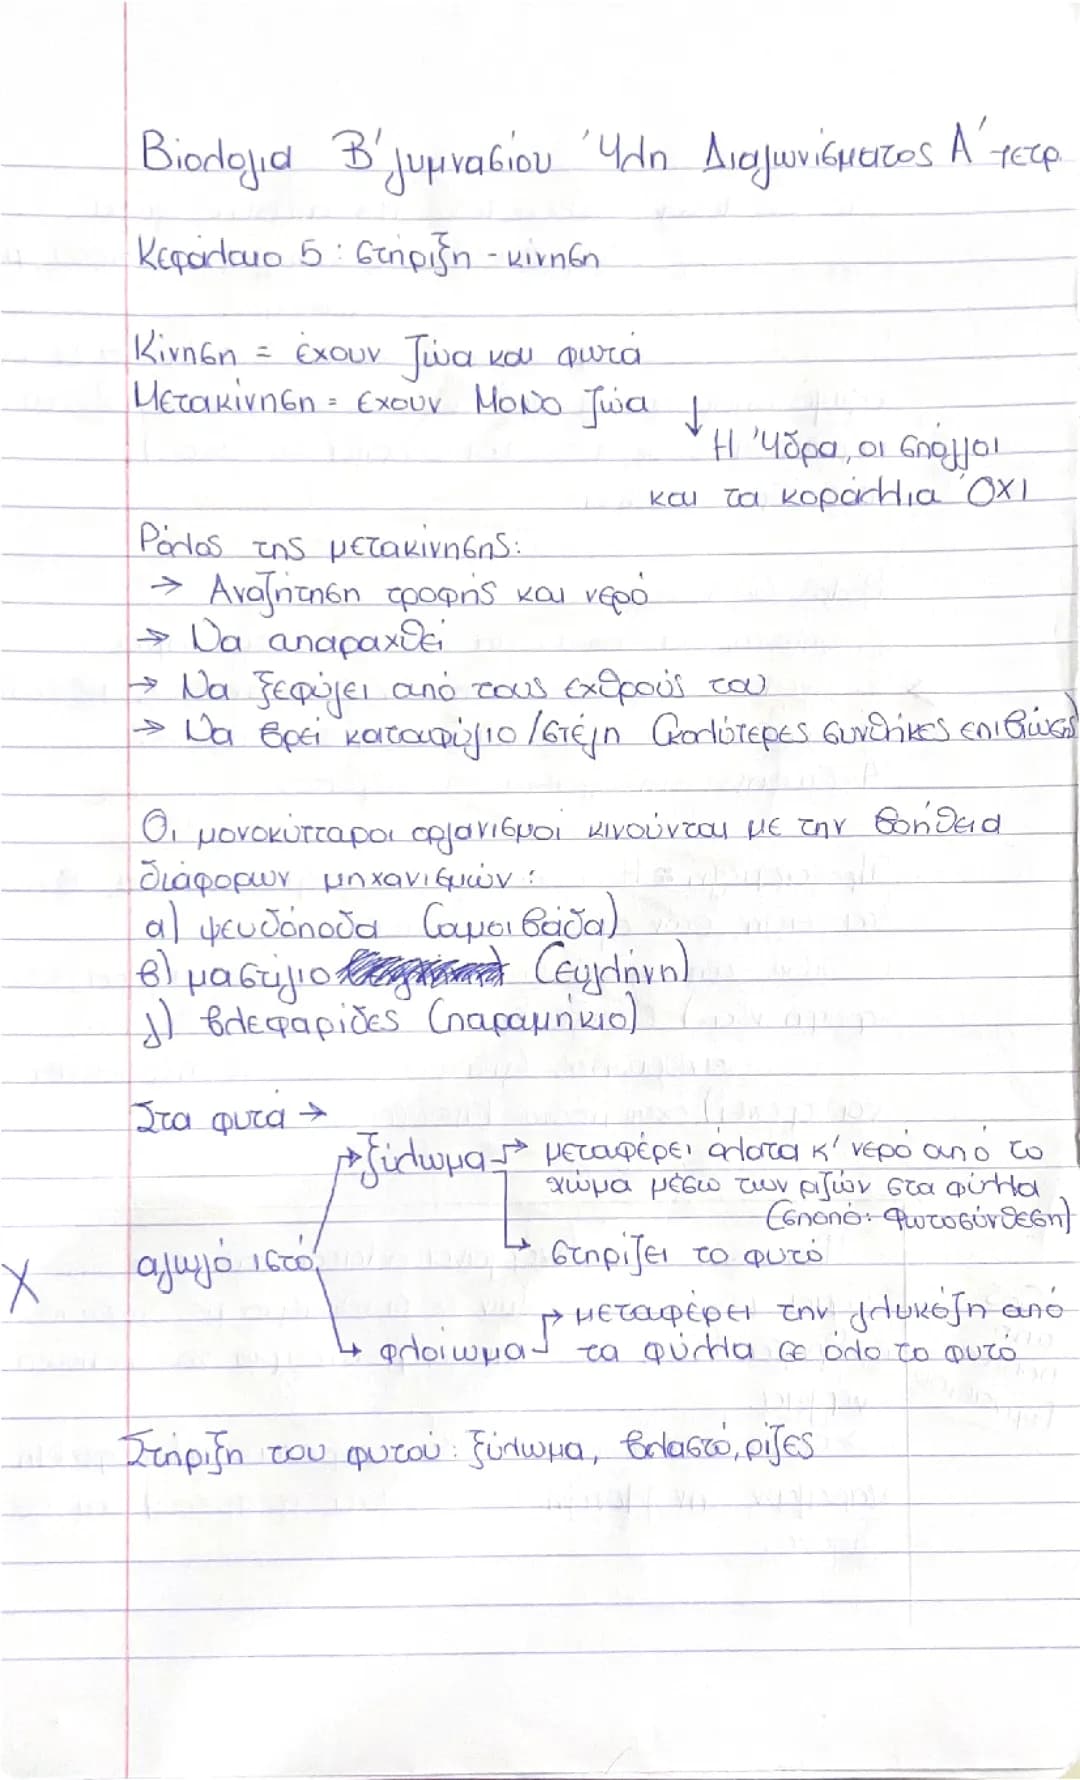 Βιολογια Β' γυμνασίου Ύλη Διαγωνίσματος Α' τετρ.
Κεφάλαιο 5: Στήριξη - κίνηση
Κίνηση = έχουν ζώα και φυτά
Μετακίνηση = έχουν ΜΟΝΟ ζώα ↓
Η Ύδρα, οι σπόγγοι
και τα κοράλλια ΌΧΙ
Ρόλος της μετακίνησης:
→ Αναζήτηση τροφής και νερό
→ Να απαραχθεί
→ Να ξεφύγει από τους εχθρούς του
→ Να βρει καταφύγιο / στέγη (καλύτερες συνθήκες επιβίωσης)
Οι μονοκύτταροι οργανισμοί κινούνται με την βοήθεια
διάφορων μηχανισμών:
α) ψευδόποδα (αμοιβάδα)
β) μαστίγιο (ευγλήνη)
γ) βλεφαρίδες (παραμήκιο)
Στα φυτά →
ξύλωμα → μεταφέρει άλατα κ' νερό από το
χώμα μέσω των ριζών στα φύλλα
(σποπό: Φωτοσύνθεση)
→ στηρίζει το φυτό
Χ αγωγό ιστό
→ μεταφέρει την γλυκόζη από
→ φλοίωμα τα φύλλα σε όλο το φυτό
Στήριξη του φυτού: ξύλωμα, βλαστό, ρίζες